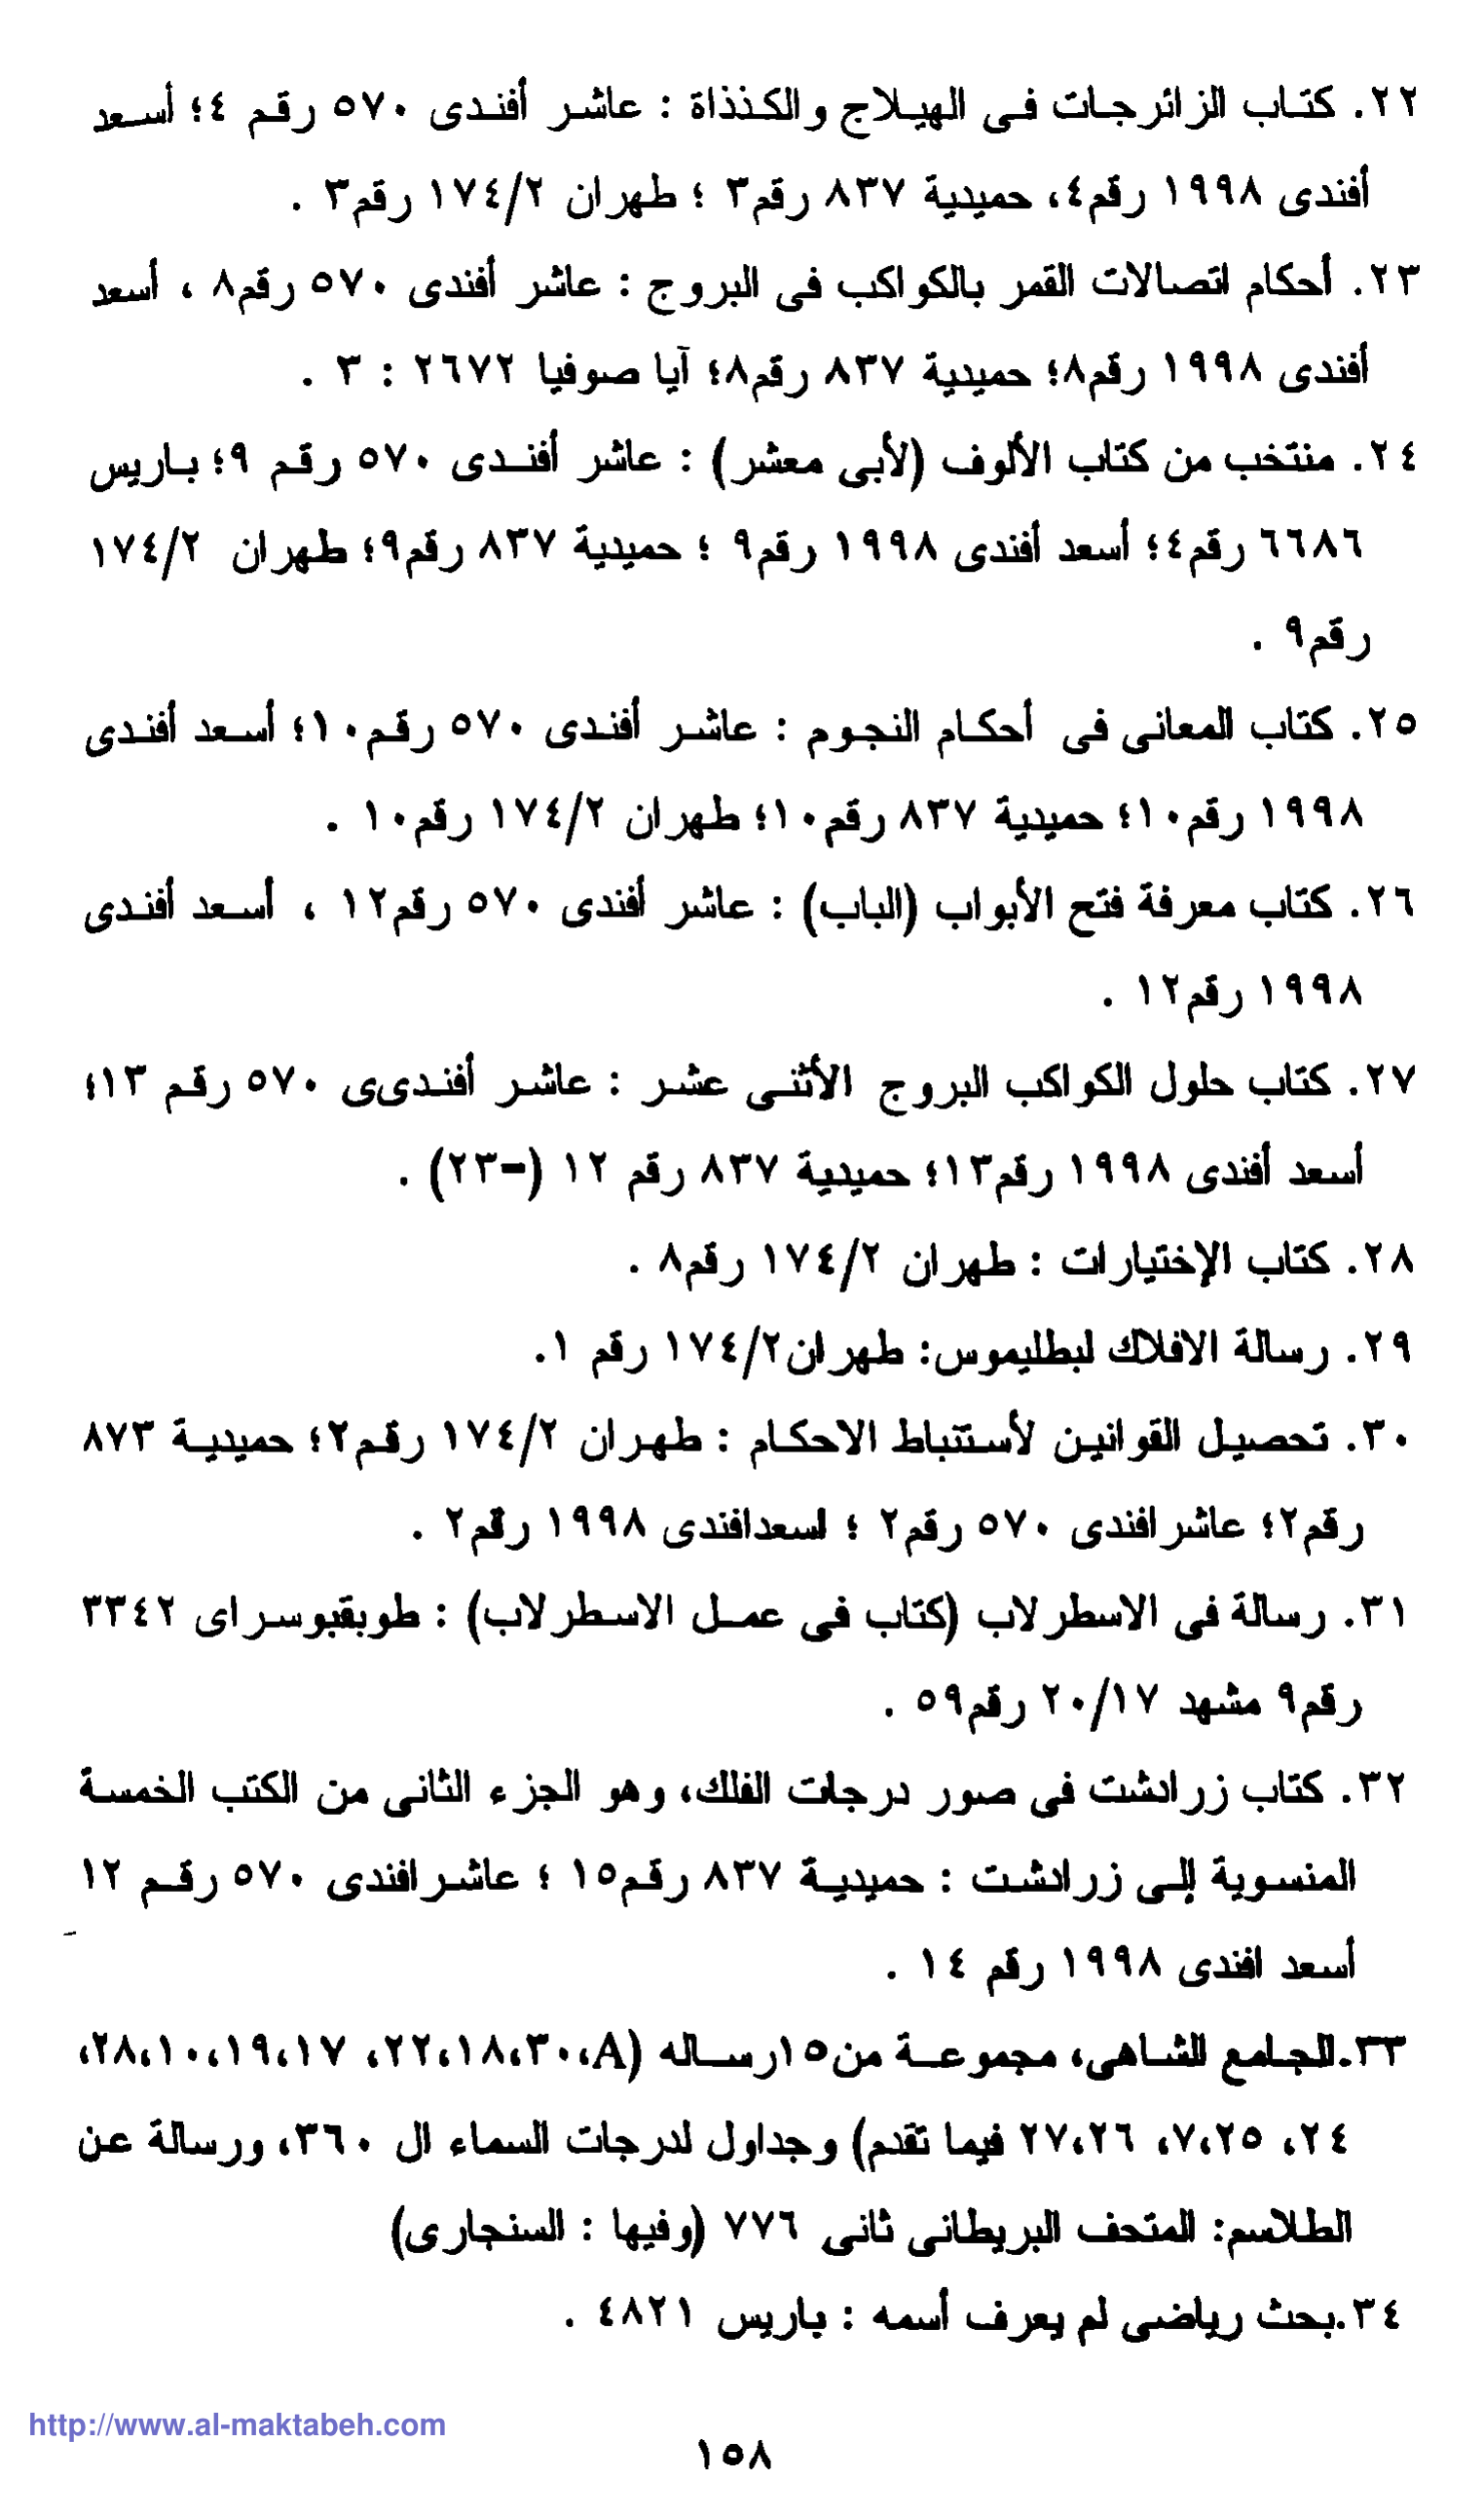 ٢٢. كتاب الزائرجات فى الهيلاج والكنذاة : عاشر أفندى ٥٧٠ رقم ٤؛ أسعد
أفندى ١٩٩٨ رقم٤، حميدية ٨٣٧ رقم٣ ؛ طهران ١٧٤/٢ رقم٣ .
٢٣. أحكام اتصالات القمر بالكواكب فى البروج : عاشر أفندى ٥٧٠ رقم٨ ، أسعد
أفندى ١٩٩٨ رقم٨؛ حميدية ٨٣٧ رقم٨؛ آيا صوفيا ٢٦٧٢ : ٣ .
٢٤. منتخب من كتاب الألوف (لأبى معشر) : عاشر أفندى ٥٧٠ رقم ٩؛ باريس
٦٦٨٦ رقم٤؛ أسعد أفندى ١٩٩٨ رقم٩ ؛ حميدية ٨٣٧ رقم٩؛ طهران ١٧٤/٢
رقم٩ .
٢٥. كتاب المعانى فى أحكام النجوم : عاشر أفندى ٥٧٠ رقم١٠؛ أسعد أفندى
١٩٩٨ رقم١٠؛ حميدية ٨٣٧ رقم١٠؛ طهران ١٧٤/٢ رقم١٠ .
٢٦. كتاب معرفة فتح الأبواب (الباب) : عاشر أفندى ٥٧٠ رقم١٢ ، أسعد أفندى
١٩٩٨ رقم١٢ .
٢٧. كتاب حلول الكواكب البروج الأثنى عشر : عاشر أفندىى ٥٧٠ رقم ١٣؛
أسعد أفندى ١٩٩٨ رقم١٣؛ حميدية ٨٣٧ رقم ١٢ (=٢٣) .
٢٨. كتاب الإختيارات : طهران ١٧٤/٢ رقم٨ .
٢٩. رسالة الافلاك لبطليموس: طهران١٧٤/٢ رقم ١.
٣٠. تحصيل القوانين لأستنباط الاحكام : طهران ١٧٤/٢ رقم٢؛ حميدية ٨٧٣
رقم٢؛ عاشرافندى ٥٧٠ رقم٢ ؛ اسعدافندى ١٩٩٨ رقم٢ .
٣١. رسالة فى الاسطرلاب (كتاب فى عمل الاسطرلاب) : طوبقبوسراى ٣٣٤٢
رقم٩ مشهد ٢٠/١٧ رقم٥٩ .
٣٢. كتاب زرادشت فى صور درجات الفلك، وهو الجزء الثانى من الكتب الخمسة
المنسوية إلى زرادشت : حميدية ٨٣٧ رقم١٥ ؛ عاشرافندى ٥٧٠ رقم ١٢
أسعد افندى ١٩٩٨ رقم ١٤ .
٣٣.الجامع الشاهى، مجموعة من١٥رساله (A،٣٠،١٨،٢٢، ١٧،١٩،١٠،٢٨،
٢٤، ٧،٢٥، ٢٧،٢٦ فيما تقدم) وجداول لدرجات السماء ال ٣٦٠، ورسالة عن
الطلاسم: المتحف البريطانى ثانى ٧٧٦ (وفيها : السنجارى)
٣٤.بحث رياضى لم يعرف أسمه : باريس ٤٨٢١ .
http://www.al-maktabeh.com
١٥٨